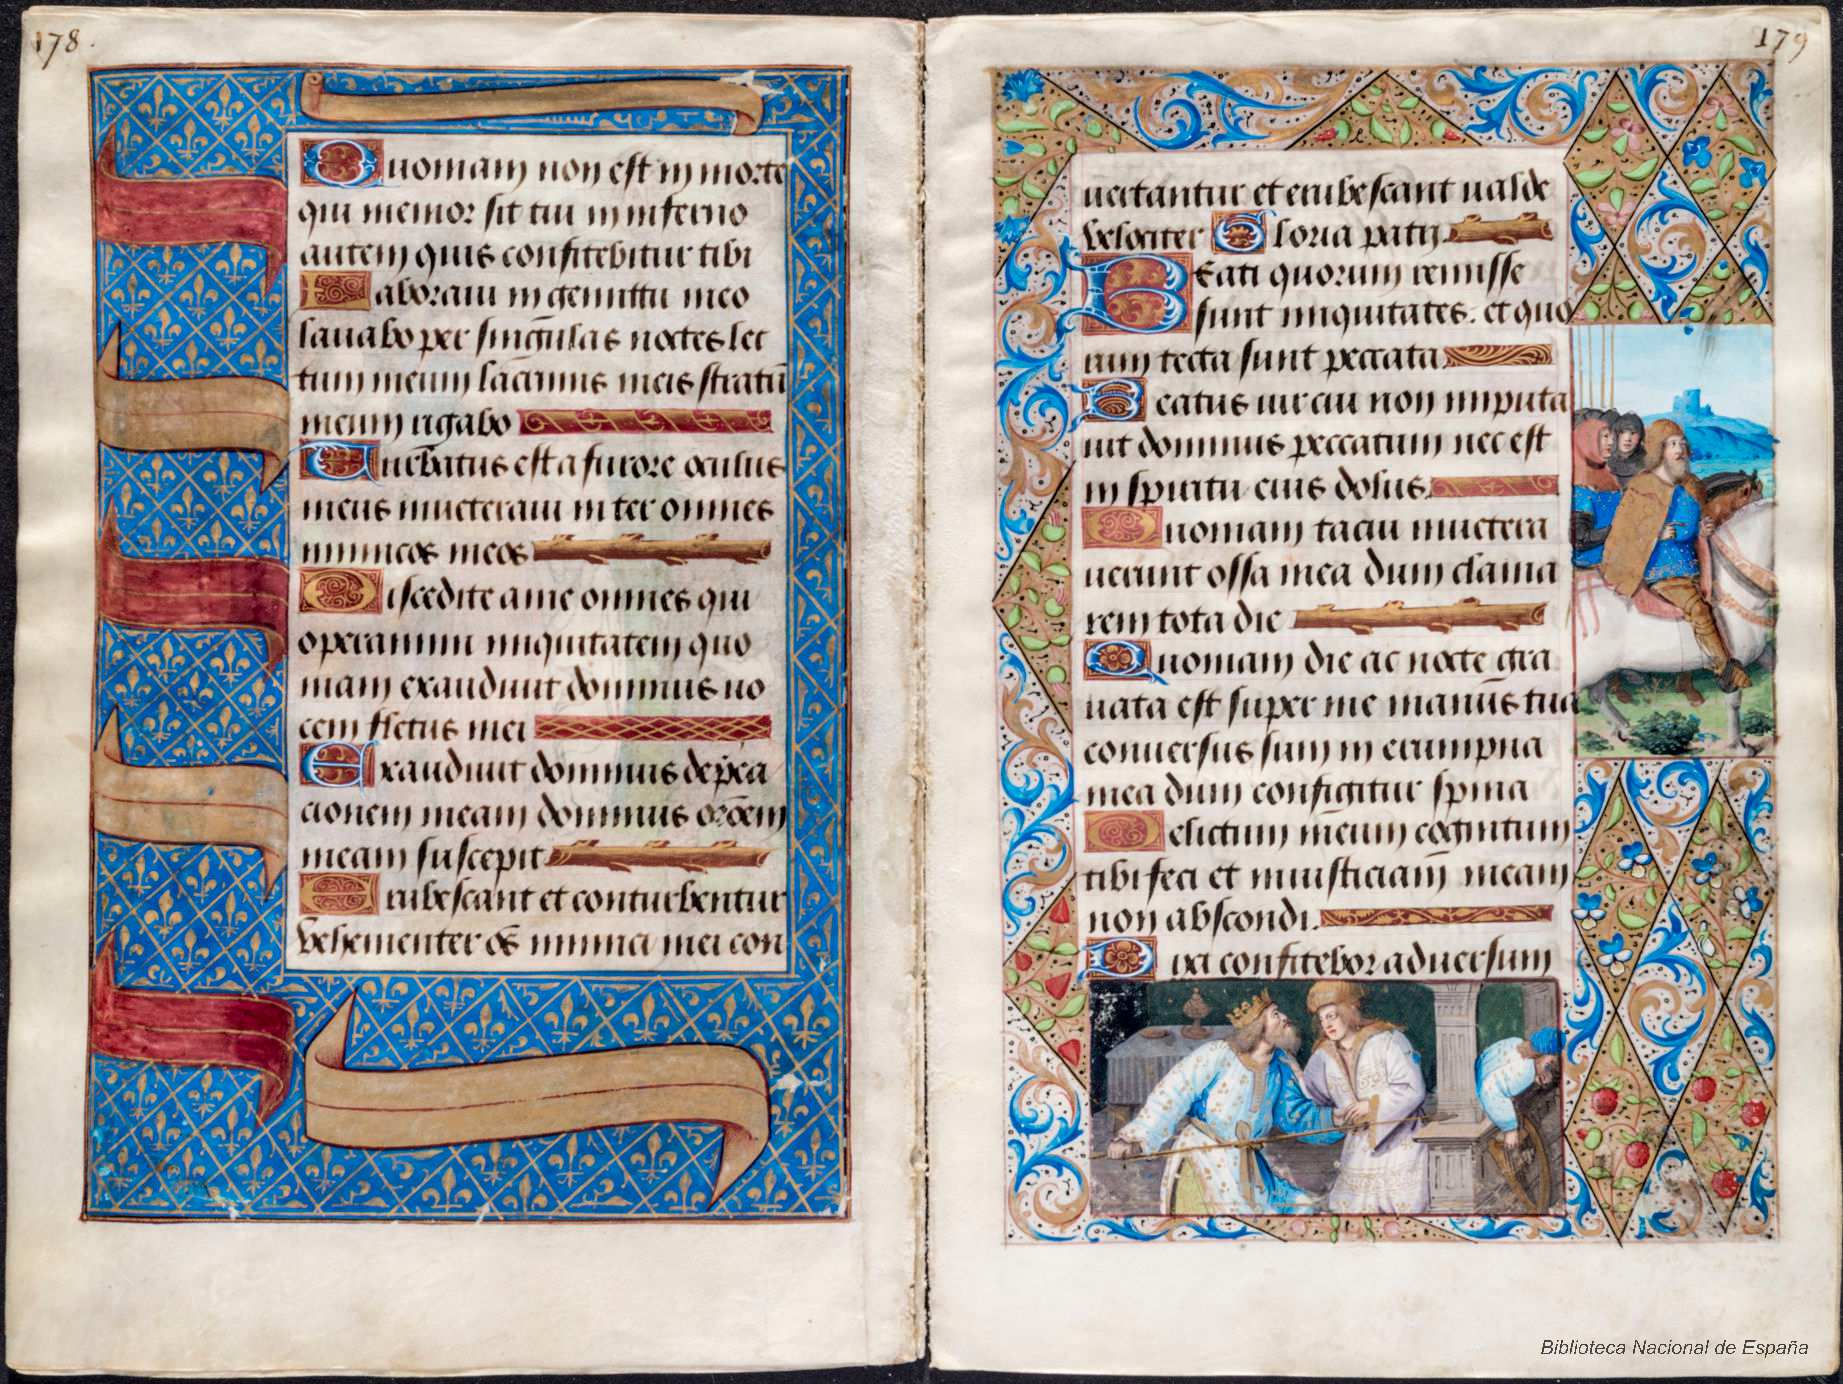 178.
Quoniam non est in morte
qui memor sit tui in inferno
autem quis confitebitur tibi
Laboraui in gemittu meo
lauabo per singulas noctes lec
tum meum lacrimis meis stratū
meum rigabo
Turbatus est a furore oculus
meus inueteraui inter omnes
inimicos meos
Discedite a me omnes qui
operamini iniquitatem quo
niam exaudiuit dominus uo
cem fletus mei
Exaudiuit dominus depręca
cionem meam dominus orōem
meam suscepit
Erubescant et conturbentur
vehementer os inimici mei con
179
uertantur et erubescant ualde
velociter Gloria patri
BEati quorum remisse
sunt iniquitates. et quo
rum tecta sunt peccata
Beatus uir cui non imputa
uit dominus peccatum nec est
in spiritu eius dolus.
Quoniam tacui inuetera
uerunt ossa mea dum clama
rem tota die
Quoniam die ac nocte gra
uata est super me manus tua
conuersus sum in erumpna
mea dum configitur spina
Delictum meum cognitum
tibi feci et iniusticiam meam
non abscondi.
Dixi confitebor aduersum
Biblioteca Nacional de España